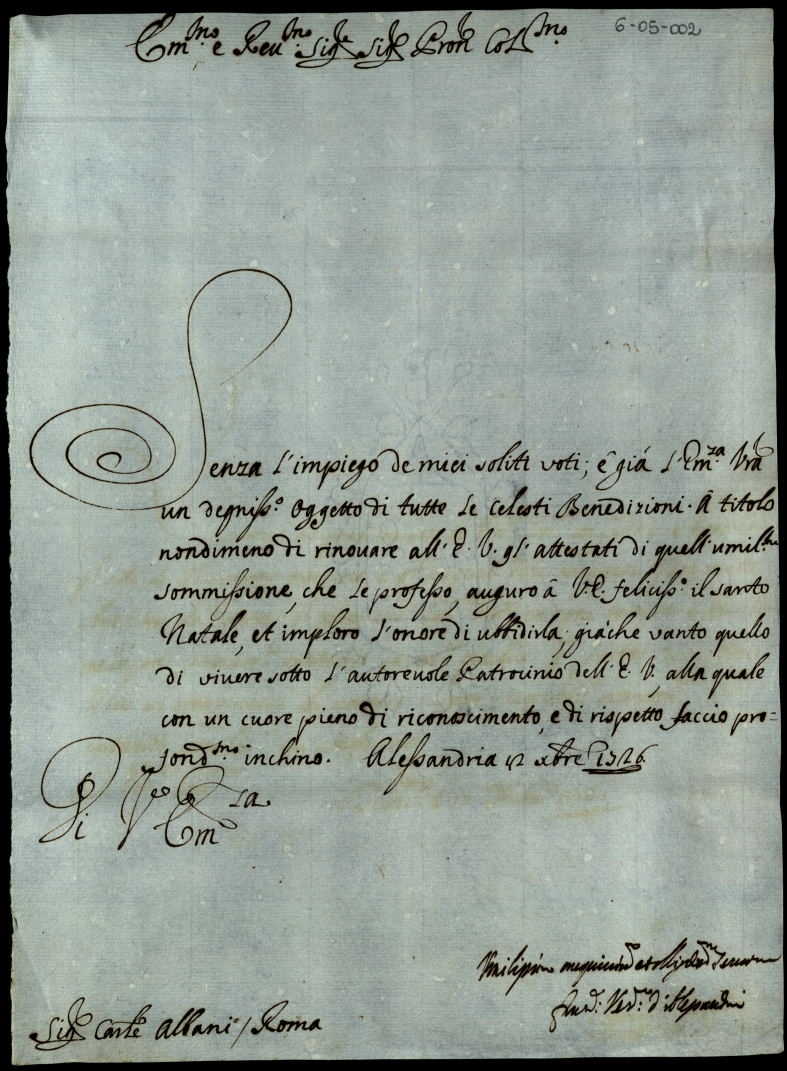 6-05-002
Em.mo e Reu.mo Sig.re Sig.re Pron Col.mo
Senza l'impiego de miei soliti voti, è già l'Em.za Vrã
un degniss.o oggetto di tutte le Celesti Benedizioni. A titolo
nondimeno di rinouare all'E. V. gl'attestati di quell'umil.ma
sommissione, che le professo, auguro à V. E. feliciss.o il santo
Natale, et imploro l'onore di ubbidirla, giache vanto quello
di viuere sotto l'autoreuole Patrocinio dell'E. V., alla quale
con un cuore pieno di riconoscimento, e di rispetto faccio pro=
fond.mo inchino. Alessandria 12 xbre 1726.
Di V.a Em.za
Sig.r Card.le Albani / Roma